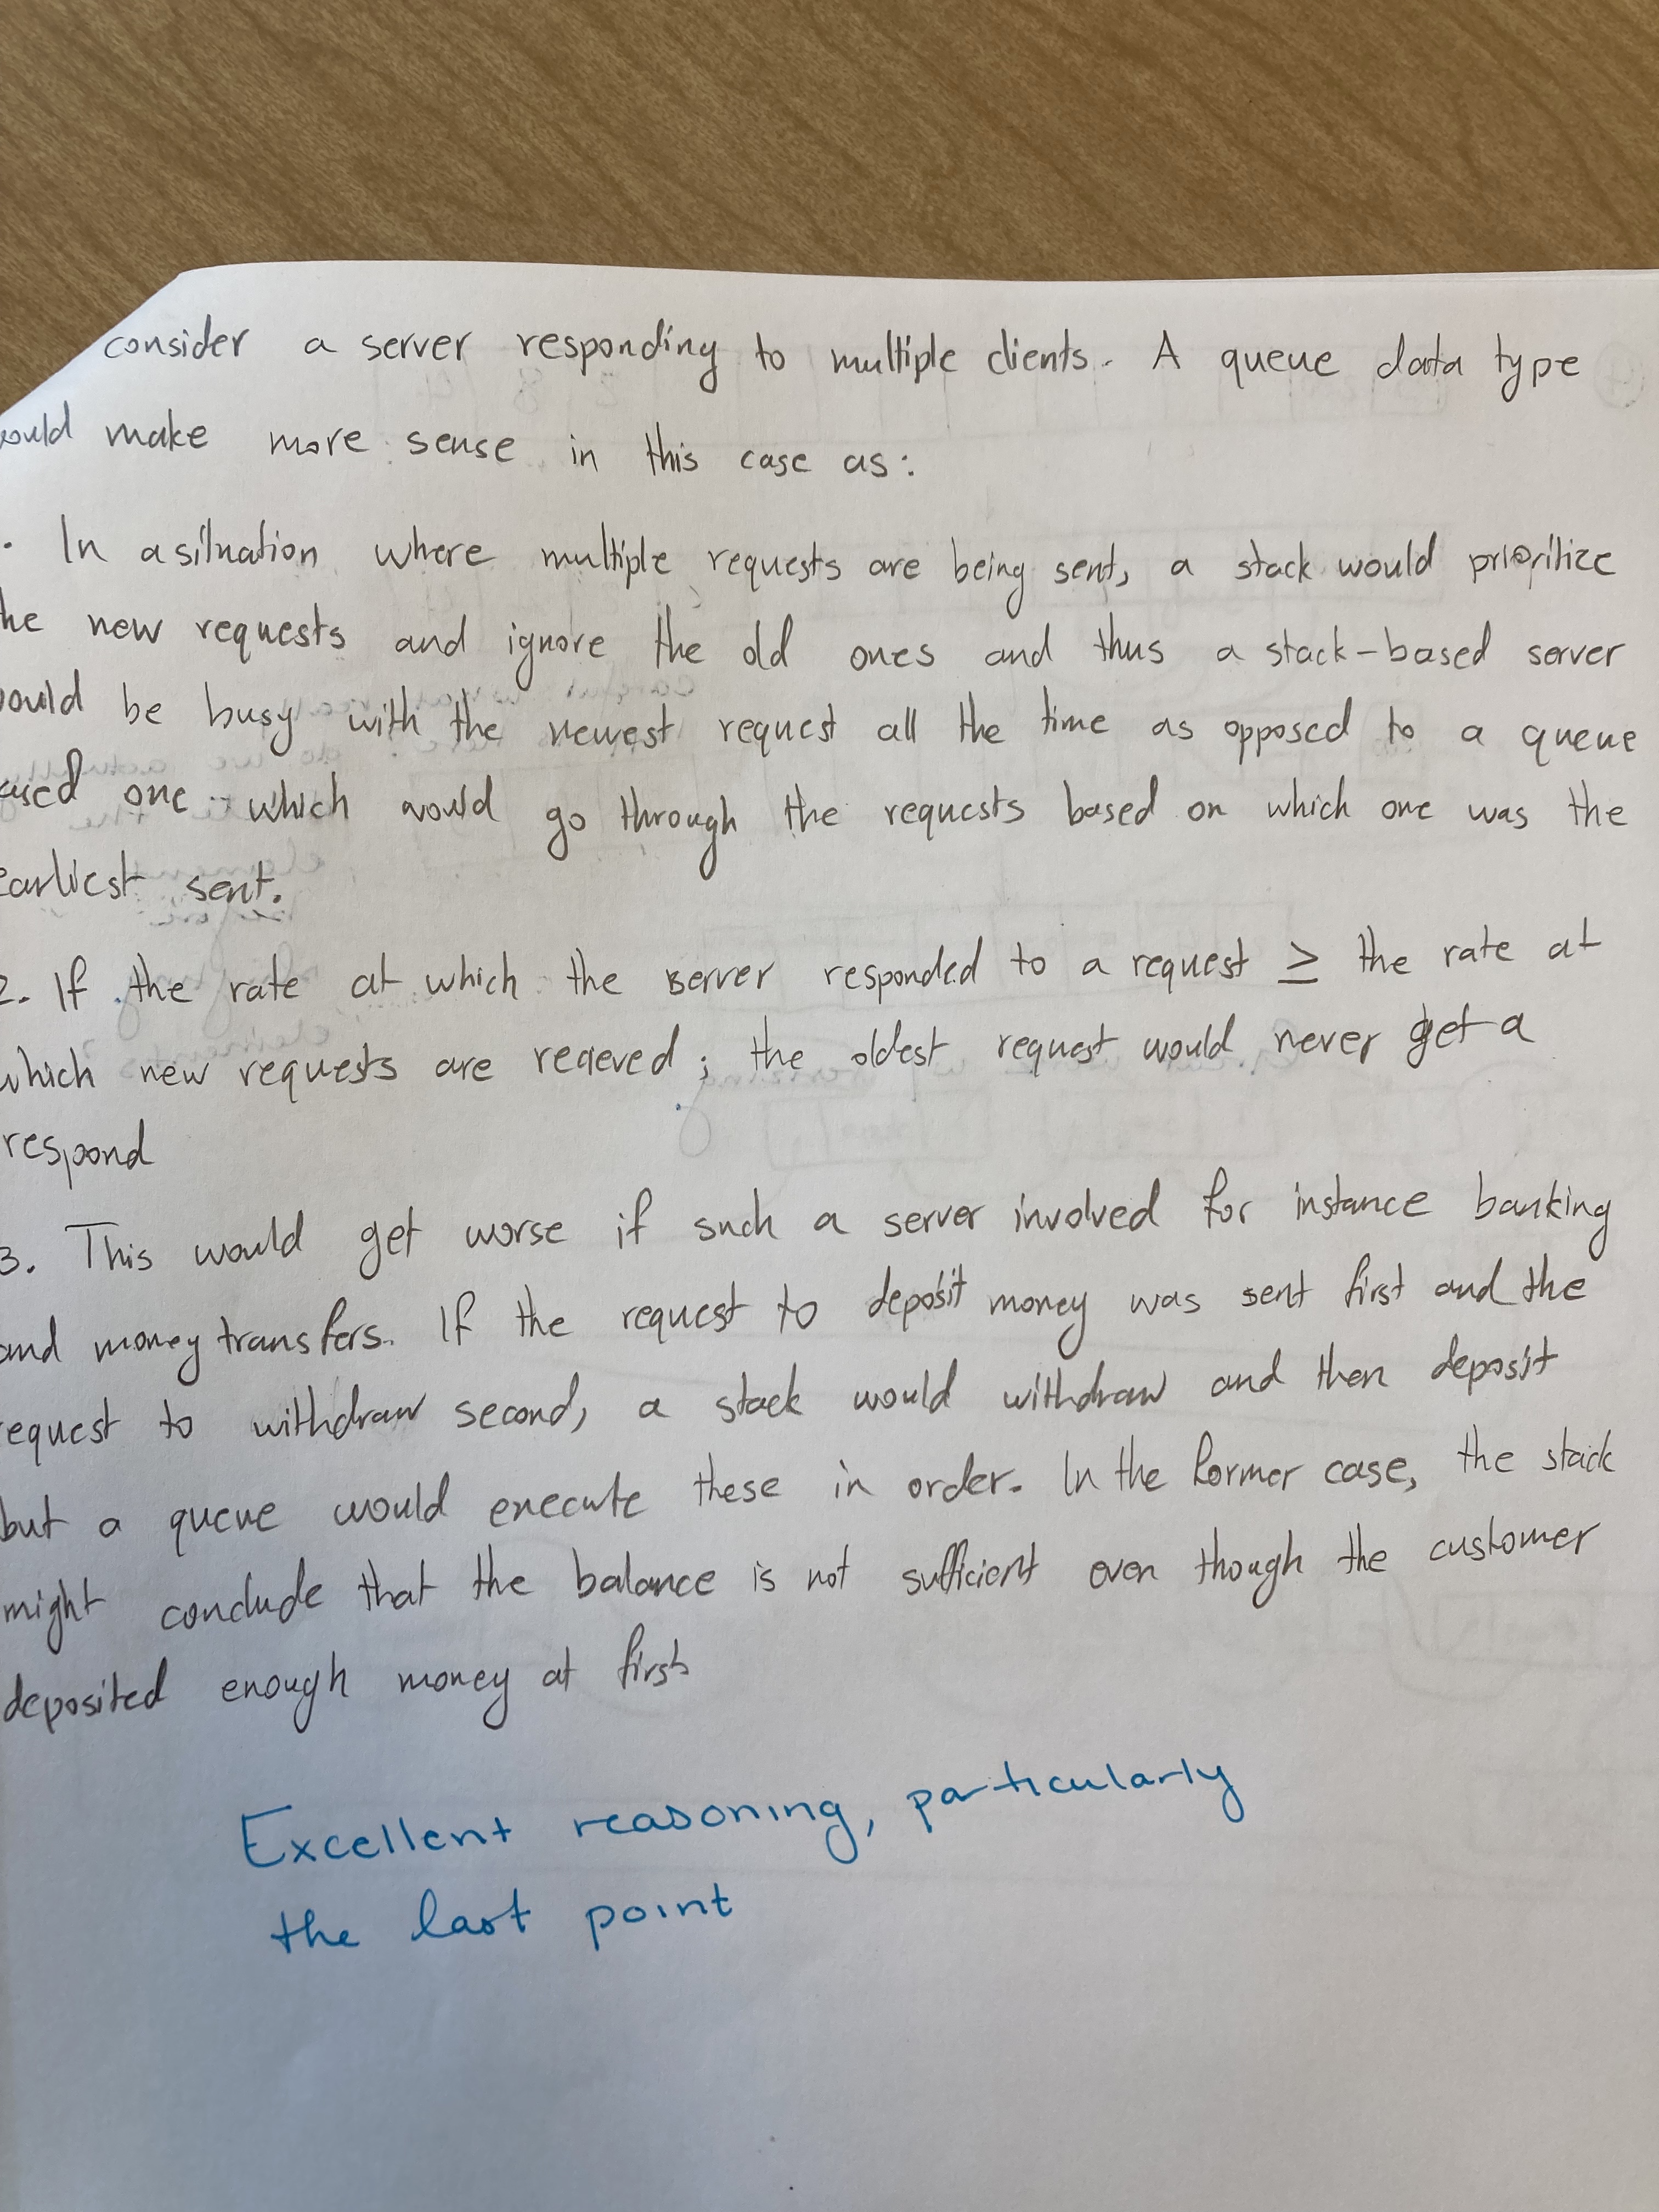 consider a server responding to multiple clients. A queue data type
ould make more sense in this case as:
. In a situation where multiple requests are being sent, a stack would prioritize
he new requests and ignore the old ones and thus a stack-based server
ould be busy with the newest request all the time as opposed to a queue
ased one which would go through the requests based on which one was the
earliest sent.
2. If the rate at which the server responded to a request ≥ the rate at
which new requests are recieved; the oldest request would never get a
respond
3. This would get worse if such a server involved for instance banking
and money transfers. If the request to deposit money was sent first and the
request to withdraw second, a stack would withdraw and then deposit
but a queue would execute these in order. In the former case, the stack
might conclude that the balance is not sufficient even though the customer
deposited enough money at first
Excellent reasoning, particularly
the last point